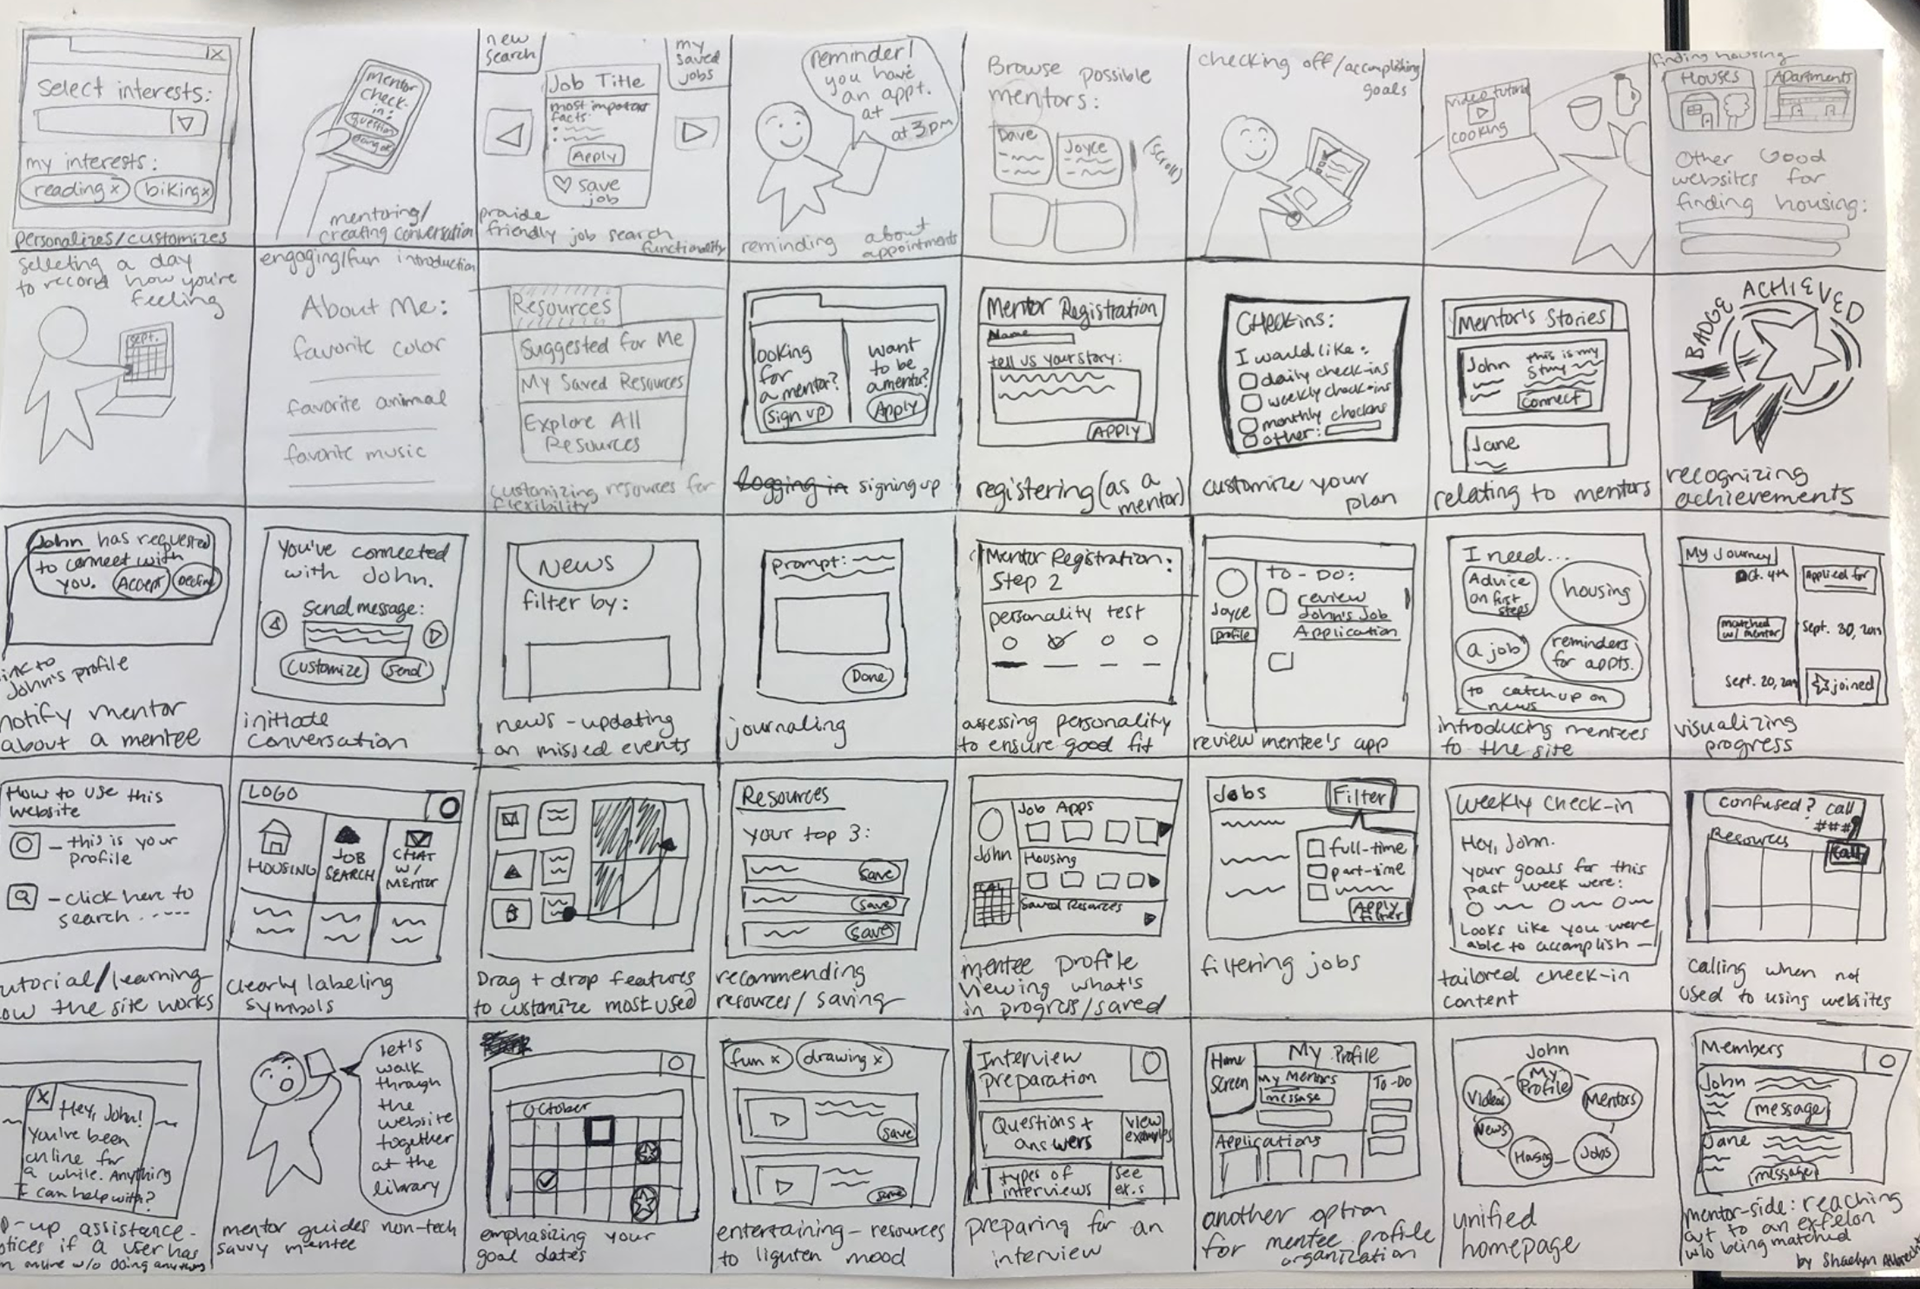 Select interests:
my interests:
reading x
biking x
personalizes/customizes
mentor
check-
in:
question
mentoring/
creating conversation
new
search
my
saved
jobs
Job Title
most important
facts:
Apply
♡ save
job
provide
friendly job search
functionality
reminder!
you have
an appt.
at ____
at 3pm
reminding about
appointments
Browse possible
mentors:
Dave
Joyce
(scroll)
checking off/accomplishing
goals
video tutorial
cooking
finding housing
Houses
Apartments
Other Good
websites for
finding housing:
selecting a day
to record how you're
feeling
sept.
engaging/fun introduction
About Me:
favorite color
favorite animal
favorite music
Resources
Suggested for Me
My Saved Resources
Explore All
Resources
customizing resources for
flexibility
ooking
for
a mentor?
sign up
want
to be
a mentor?
Apply
logging in signing up
Mentor Registration
Name
tell us your story:
APPLY
registering (as a
mentor)
CHECKins:
I would like:
daily check-ins
weekly check-ins
monthly checkins
other:
customize your
plan
Mentor's Stories
John
this is my
story
Connect
Jane
relating to mentors
BADGE ACHIEVED
recognizing
achievements
John has requested
to connect with
you.
Accept
Decline
ink to
John's profile
notify mentor
about a mentee
You've connected
with John.
Send message:
Customize
Send
initiate
conversation
News
filter by:
news - updating
on missed events
prompt:
Done
journaling
Mentor Registration:
Step 2
personality test
assessing personality
to ensure good fit
Joyce
profile
TO-DO:
review
John's Job
Application
review mentee's app
I need...
Advice
on first
steps
housing
a job
reminders
for appts.
to catch up on
news
introducing mentees
to the site
My Journey
Oct. 4th
Applied for
matched
w/ mentor
Sept. 30, 2019
Sept. 20, 2019
joined
visualizing
progress
How to use this
website
- this is your
profile
- click here to
search.....---
utorial/learning
ow the site works
LOGO
HOUSING
JOB
SEARCH
CHAT
w/
Mentor
clearly labeling
symbols
Drag + drop features
to customize most used
Resources
your top 3:
save
save
save
recommending
resources/ saving
John
CAL
Job Apps
Housing
Saved Resources
mentee profile
viewing what's
in progress/saved
Jobs
Filter
full-time
part-time
APPLY
Filter
filtering jobs
Weekly Check-in
Hey, John.
your goals for this
past week were:
Looks like you were
able to accomplish —
tailored check-in
content
Confused? call
###
Resources
Call
calling when not
used to using websites
x
Hey, John!
you've been
online for
a while. Anything
I can help with?
p-up assistance-
otices if a user has
n online w/o doing anything
let's
walk
through
the
website
together
at the
library
mentor guides non-tech
savvy mentee
October
emphasizing your
goal dates
fun x
drawing x
save
save
entertaining - resources
to lighten mood
Interview
preparation
Questions +
answers
view
examples
types of
interviews
see
ex.s
preparing for an
interview
Home
Screen
My Profile
My Mentors
message
TO-DO
Applications
another option
for mentee profile
organization
John
My
Profile
Videos
Mentors
News
Housing
Jobs
unified
homepage
Members
John
message
Jane
message
mentor-side: reaching
out to an exfelon
w/o being matched
by Shaelyn